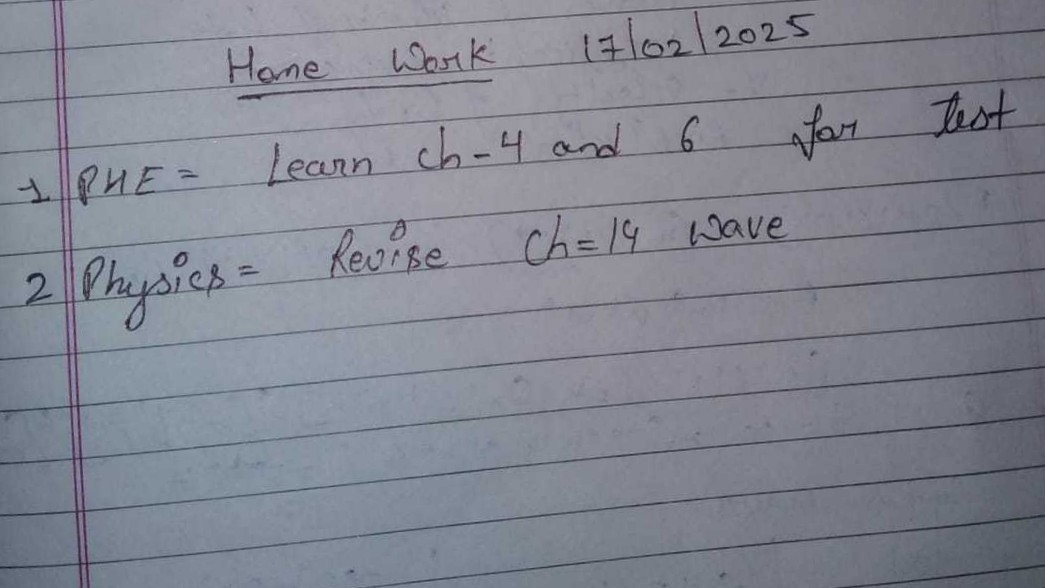 Home Work 17/02/2025
1 PHE = Learn ch-4 and 6 for test
2 Physics = Revise Ch=14 Wave